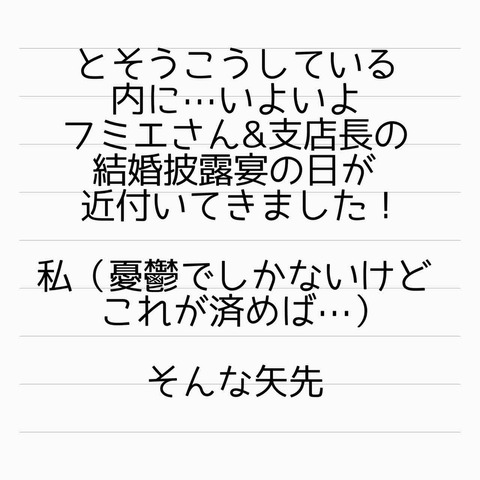 とそうこうしている
内に…いよいよ
フミエさん&支店長の
結婚披露宴の日が
近付いてきました！
私（憂鬱でしかないけど
これが済めば…）
そんな矢先